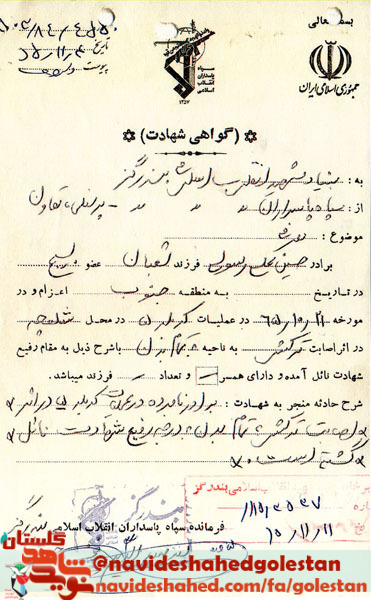 بسمه تعالی
جمهوری اسلامی ایران
سپاه
پاسداران
انقلاب
اسلامی
۱۳۵۷
تاریخ
پیوست
(گواهی شهادت)
به : بنیاد شهید انقلاب اسلامی بندرگز
از : سپاه پاسداران " " " - پرسنلی، تعاون
موضوع : معرفی
برادر حسین فرزند شعبان عضو بسیج
در تاریخ ـ به منطقه جنوب اعزام و در
مورخه ۶۵/۱۰/۲۱ در عملیات کربلای ۵ در محل شلمچه
در اثر اصابت ترکش به ناحیه تمام بدن با شرح ذیل به مقام رفیع
شهادت نائل آمده و دارای همسر و تعداد ـ فرزند میباشد.
شرح حادثه منجر به شهادت : برادر نامبرده در عملیات کربلای ۵ در اثر
اصابت ترکش به تمام بدن به درجه رفیع شهادت نائل
گشته است
فرمانده سپاه پاسداران انقلاب اسلامی بندرگز
اسلامی بندرگز
گلستان
شاهد
نوید
@navideshahedgolestan
navideshahed.com/fa/golestan